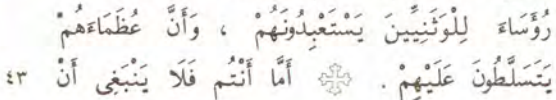 رُؤَسَاءَ لِلْوَثَنِيِّينَ يَسْتَعْبِدُونَهُمْ ، وَأَنَّ عُظَمَاءَهُمْ
يَتَسَلَّطُونَ عَلَيْهِمْ . أَمَّا أَنْتُم فَلَا يَنْبَغِى أَنْ ٤٣